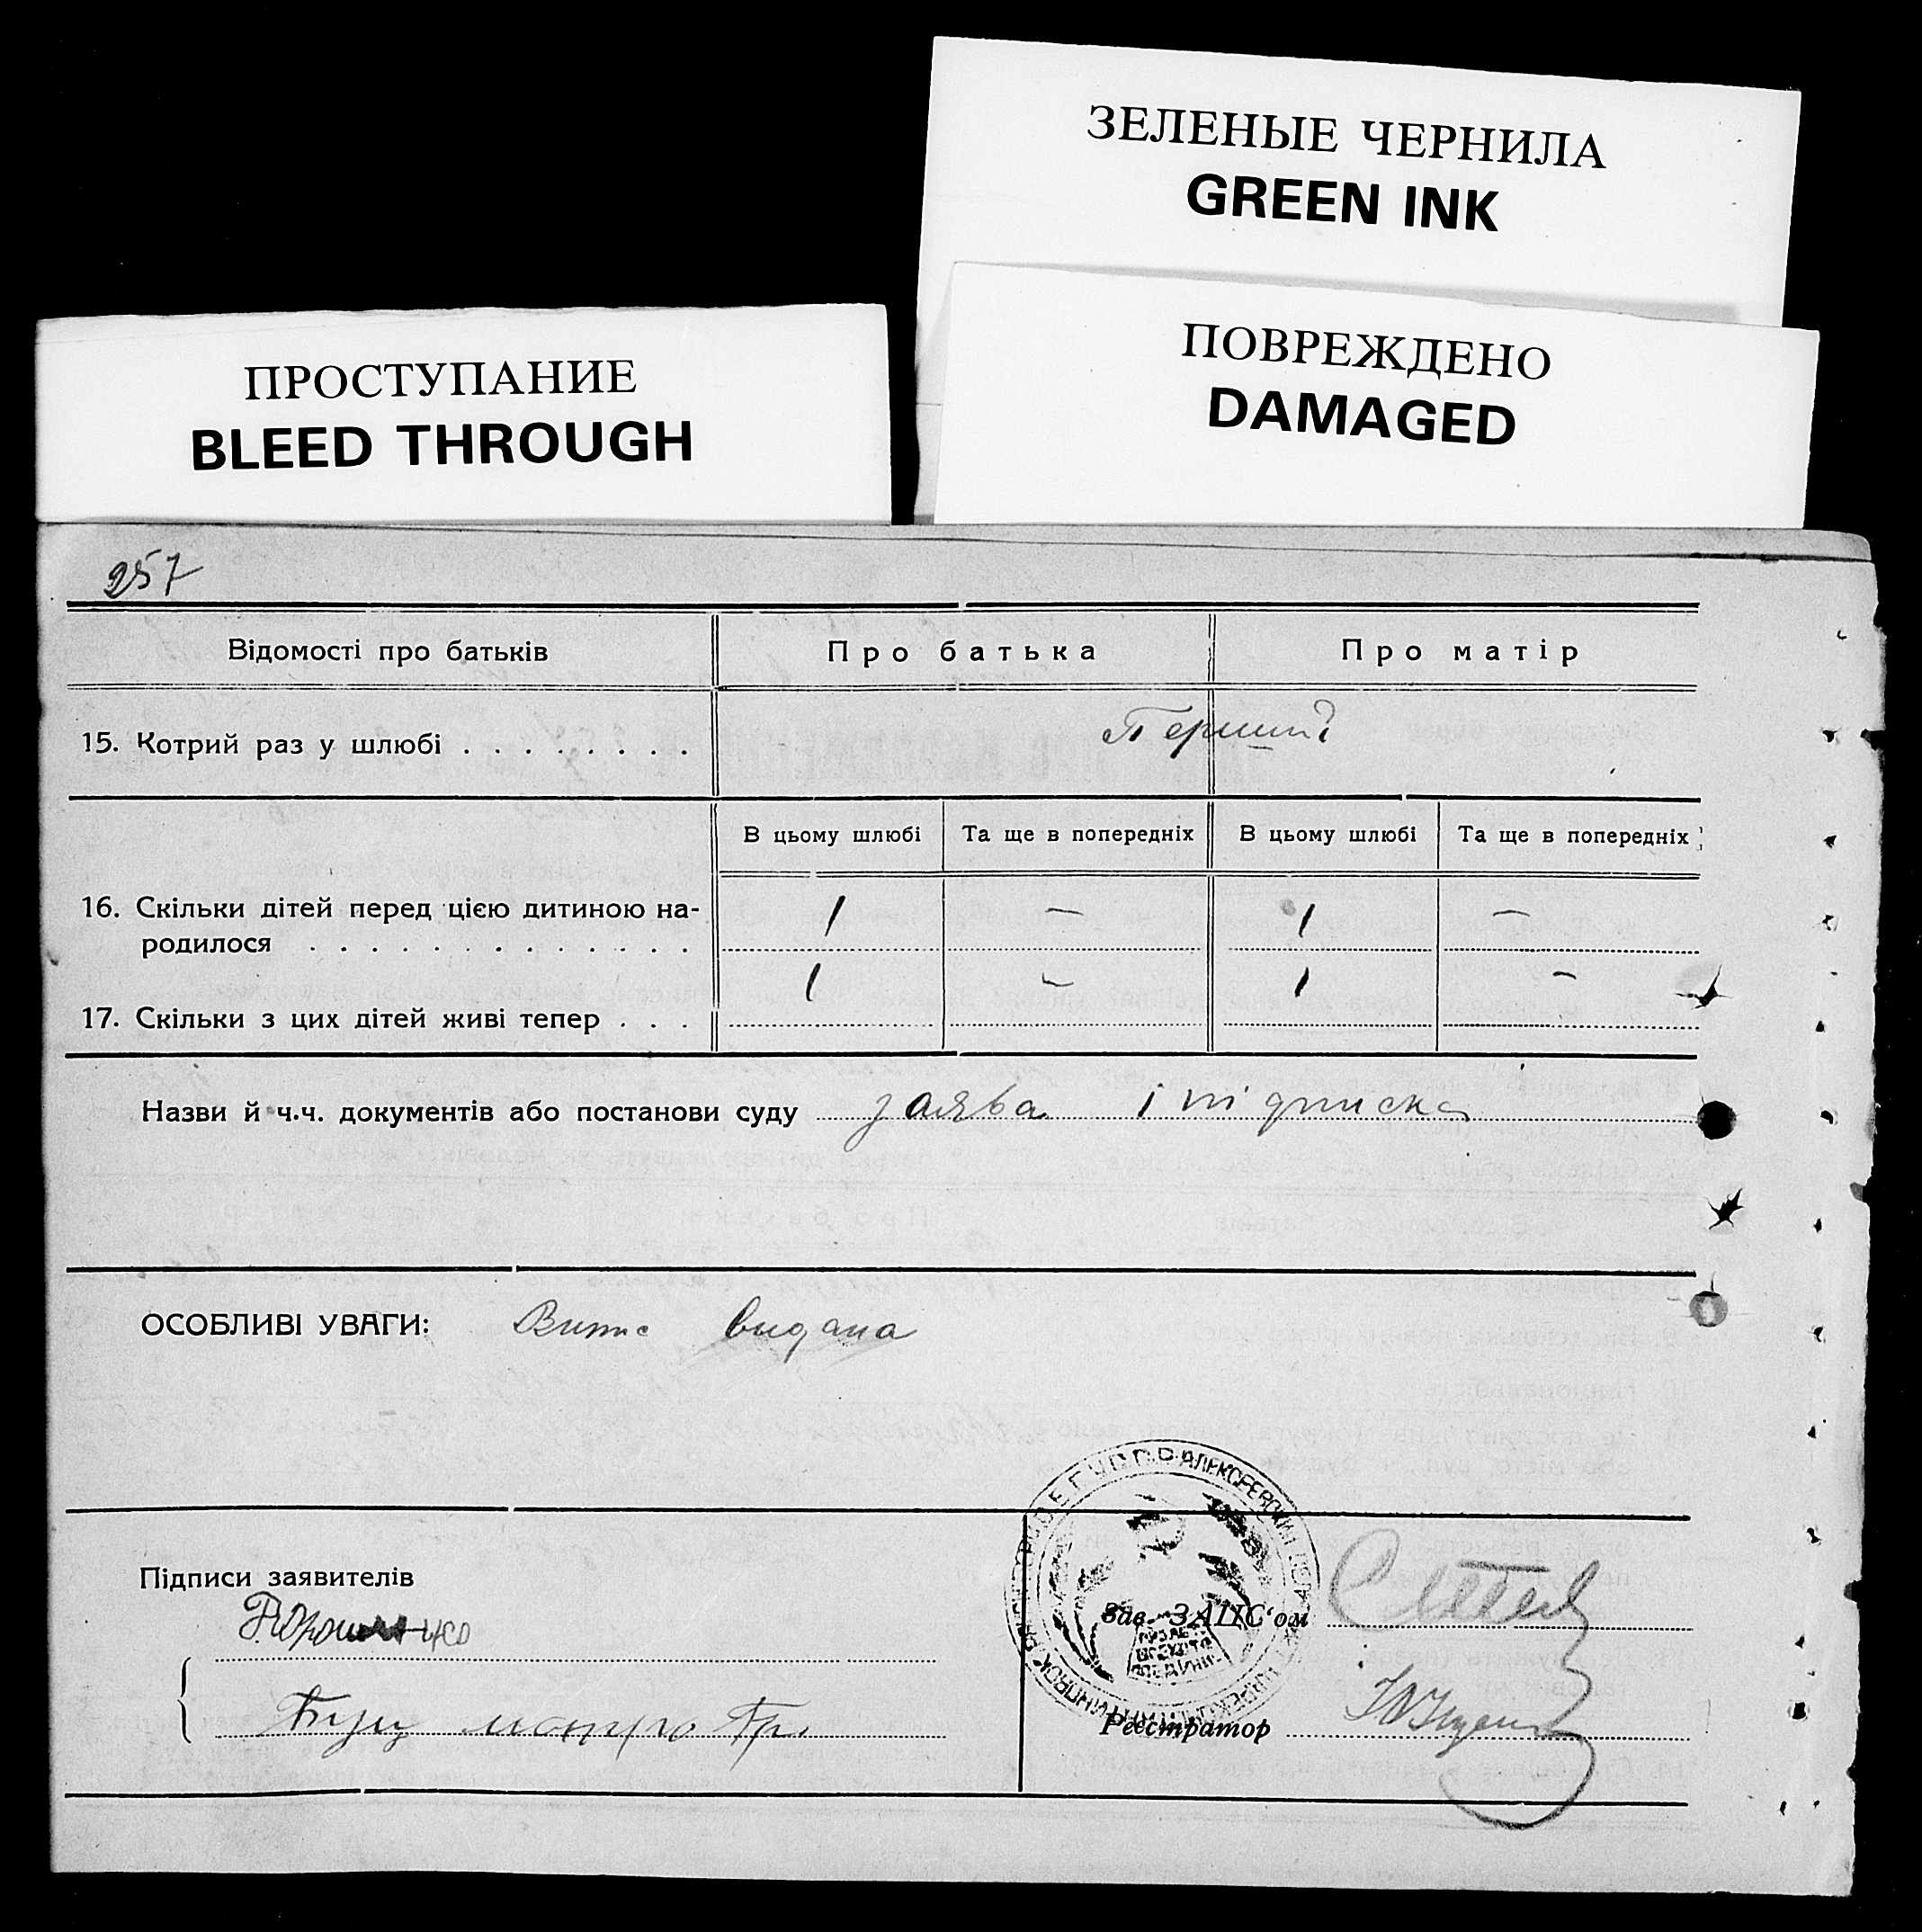 ЗЕЛЕНЫЕ ЧЕРНИЛА
GREEN INK
ПОВРЕЖДЕНО
DAMAGED
ПРОСТУПАНИЕ
BLEED THROUGH
257
Відомості про батьків
Про батька
Про матір
15. Котрий раз у шлюбі . . . . . . . .
Перший
В цьому шлюбі
Та ще в попередніх
В цьому шлюбі
Та ще в попередніх
16. Скільки дітей перед цією дитиною на-
родилося . . . . . . . . . . . . .
1 — 1 —
17. Скільки з цих дітей живі тепер . . .
1 — 1 —
Назви й ч.ч. документів або постанови суду заява і підписка
ОСОБЛИВІ УВАГИ: Випис видана
Підписи заявителів
Зав. ЗАЦС'ом
Реєстратор